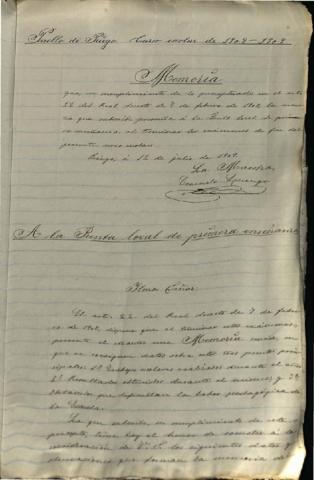 Pueblo de Piúgo Curso escolar de 1908-1909
Memoria
que, en cumplimiento de lo preceptuado en el art.
22 del Real decreto de 7 de febrero de 1908, la maes
tra que suscribe presenta á la Junta local de prime
ra enseñanza, al terminar los exámenes de fin del
presente curso escolar.
á 12 de julio de 1909.
La Maestra,
Consuelo
A la Junta local de primera enseñanza
Señor:
El art. 22 del Real decreto de 7 de febre
ro de 1908, dispone que al terminar estos exámenes
presente el maestro una Memoria
que se consignen datos sobre estos tres puntos prin
cipales: 1º Trabajos escolares realizados durante el año
2º Resultados obtenidos durante el mismo y 3º
Obstáculos que dificultan la labor pedagógica de
la Escuela.
La que suscribe, en cumplimiento de este
precepto, tiene hoy el honor de someter á la
consideración de V. S. los siguientes datos y
que forman la memoria de